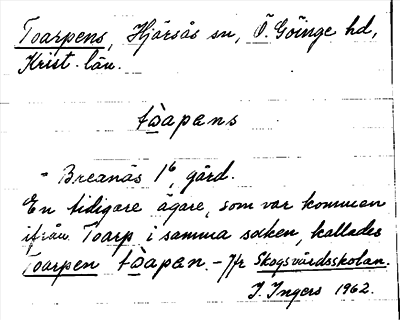 Toarpens, Hjärsås sn, Ö. Göinge hd,
Krist. län.
tωapens
" Breanäs 1⁶, gård.
En tidigare ägare, som var kommen
ifrån Toarp i samma socken, kallades
Toarpen tωapen. - Jfr Skogsvårdsskolan.
I. Ingers 1962.